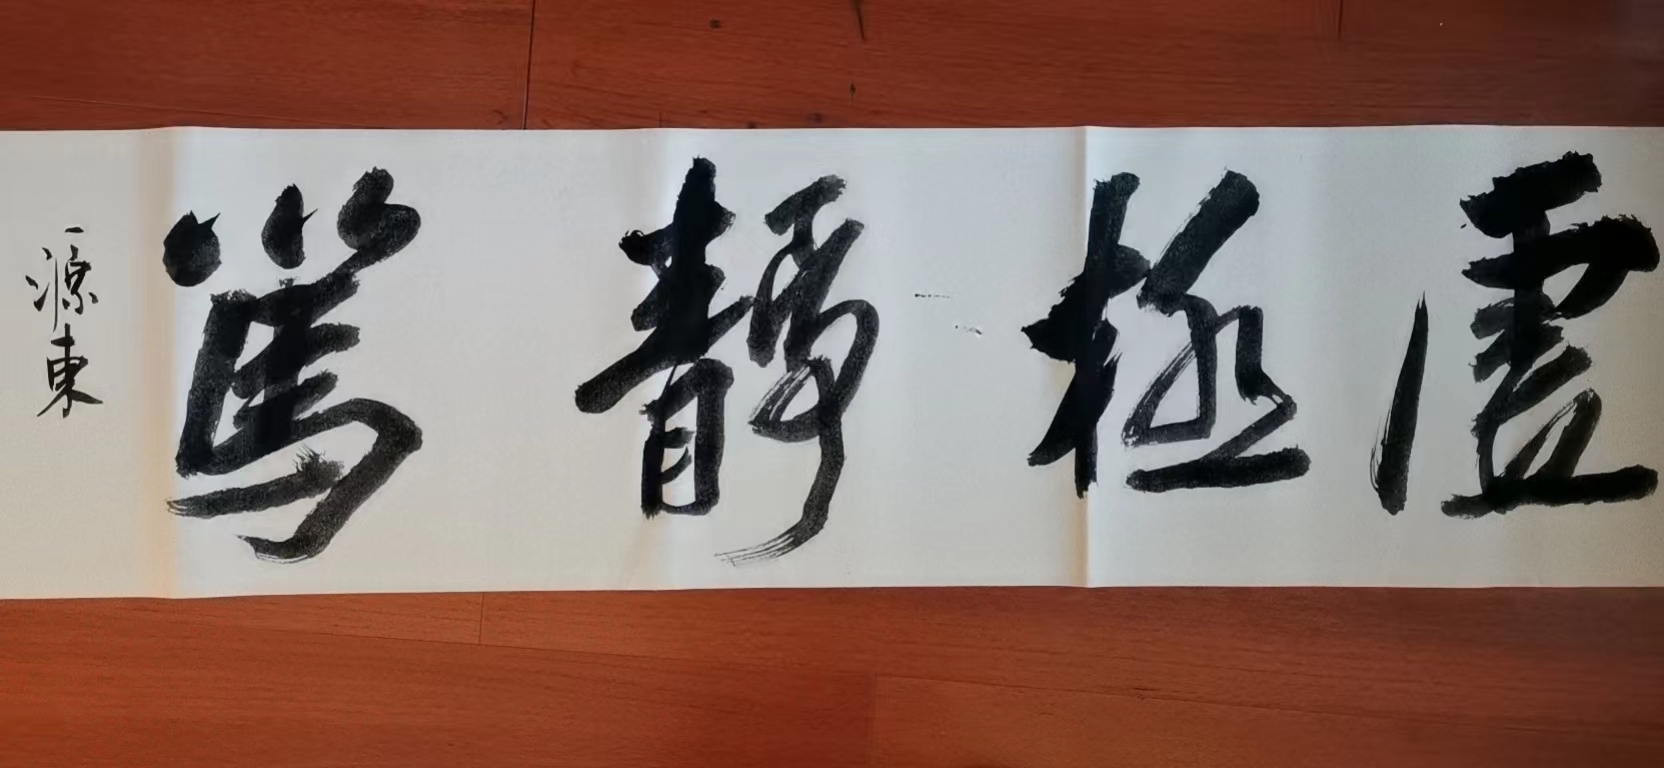 虚極靜篤
源東